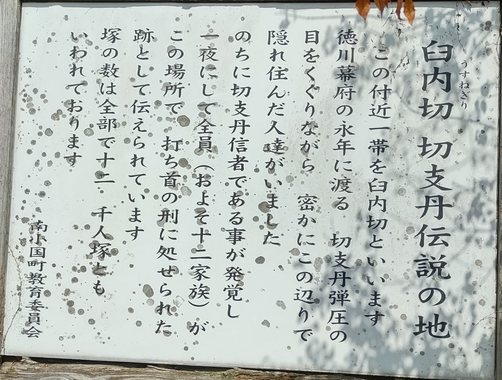 臼内切 切支丹伝説の地
うすねぎり
この付近一帯を臼内切といいます
徳川幕府の永年に渡る 切支丹弾圧の
目をくぐりながら 密かにこの辺りで
隠れ住んだ人達がいました
のちに切支丹信者である事が発覚し
一夜にして全員（およそ十二家族）が
この場所で 打ち首の刑に処せられた
跡として伝えられています
塚の数は全部で十二 千人塚とも
いわれております
南小国町教育委員会